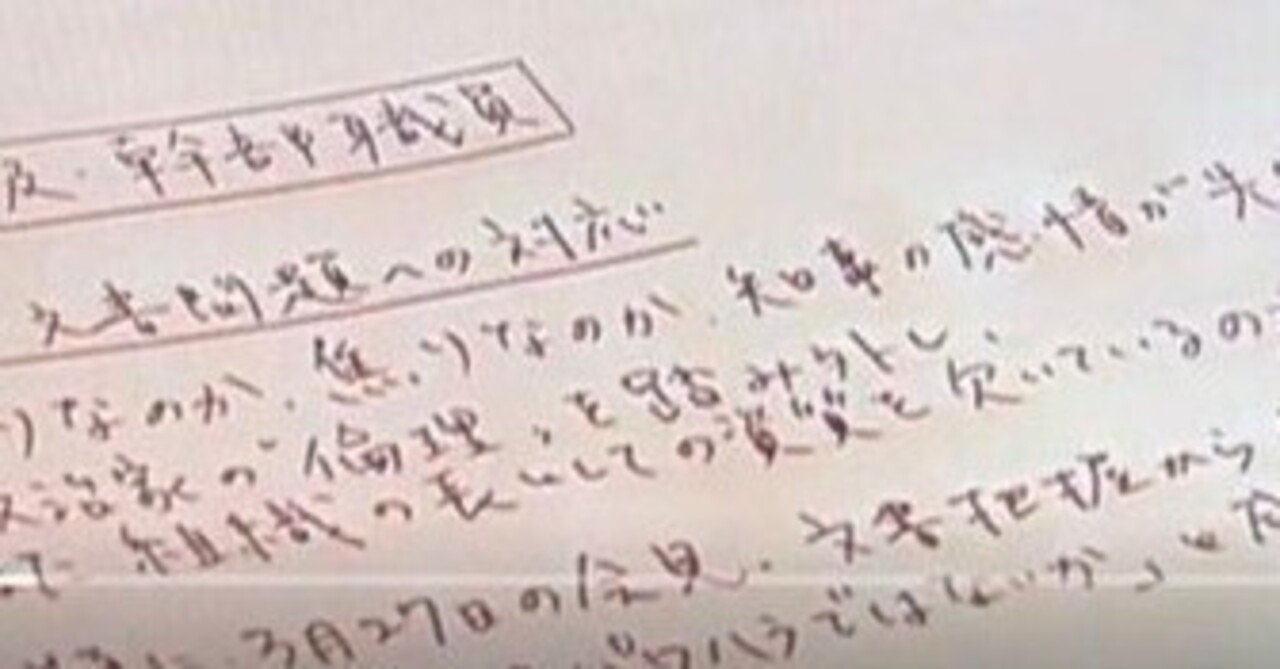 ・幹部職員
文書問題への対応
りなのか、焦りなのか、知事の感情が先
治家の"倫理"を踏み外し、
組織の長としての資質を欠いているの
3月27日の会見、文書把握から
パワハラではないか」と